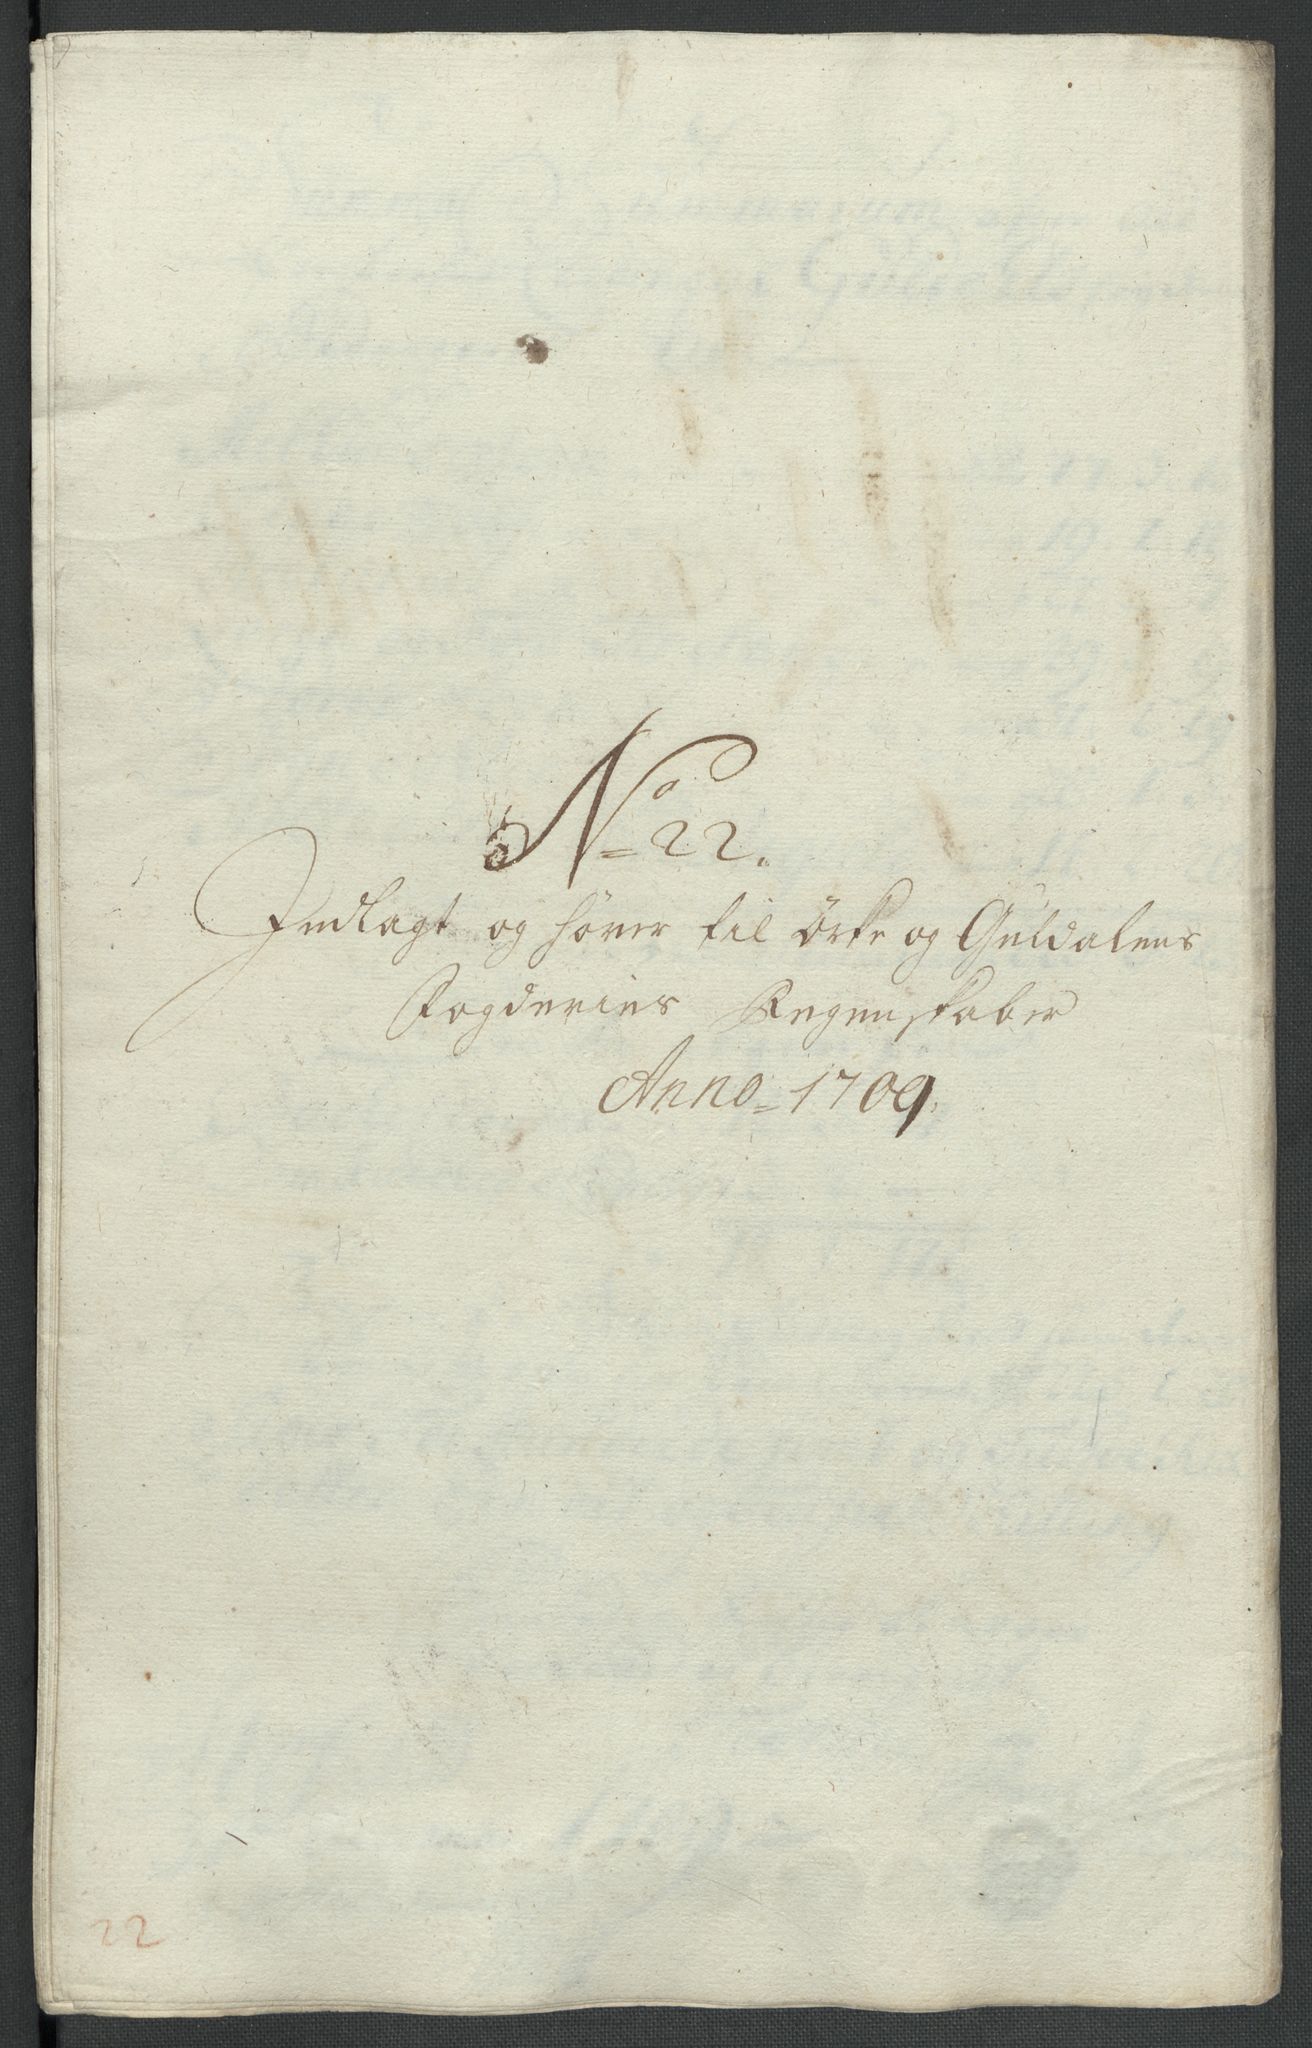 No 22.
Indlagt og hører til Örke og Guldalens
Fogderies Regenskaber
Anno 1709.
22